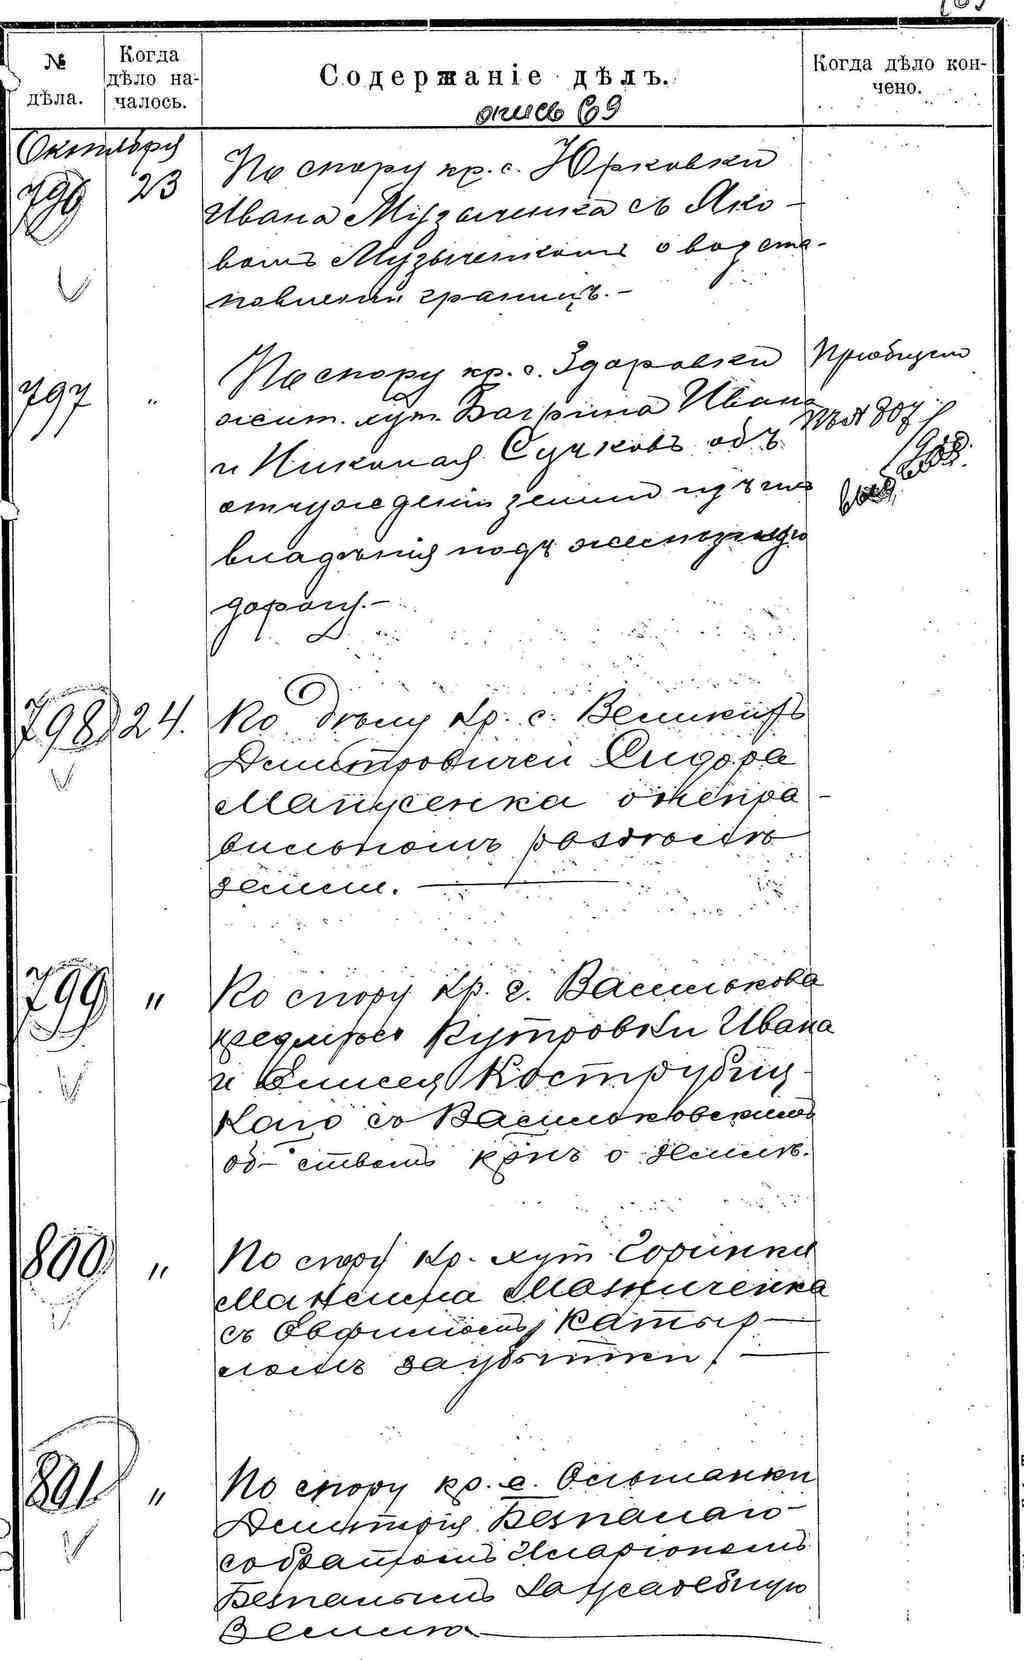 № дѣла.
Когда дѣло на-
чалось.
Содержаніе дѣлъ.
Когда дѣло кон-
чено.
опись 69
Октября
796 23 По спору кр. с. Юрковки
Ивана Музыченка съ Яко-
вомъ Музыченкомъ о возста-
новленіи границъ.-
797 " По спору кр. с. Здоровки
жит. хут. Багрина Ивана
и Николая Сучковъ объ
отчужденіи земли изъ ихъ
владѣнія подъ желѣзную
дорогу.-
Пріобщено
къ № 307
798 24. По дѣлу кр. с. Великихъ
Дмитровичей Сидора
Мапусенка о непра-
вильномъ раздѣлѣ
земли.
799 " По спору кр. г. Василькова
предмѣстья Кутровки Ивана
и Елисея Кострубиц-
каго съ Васильковскимъ
об-ствомъ крнъ о землѣ.
800 " По спору кр. хут. Горинки
Максима Мазниченка
съ Евфимомъ Катыр-
ломъ за убытки.
801 " По спору кр. с. Ольшанки
Дмитрія Безпалаго
собратомъ Иларіономъ
Безпалымъ за усадебную
землю